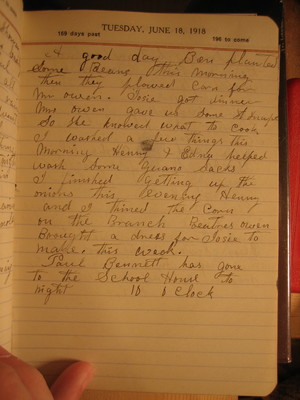 TUESDAY, JUNE 18, 1918
169 days past
196 to come
A good day Ben planted
Some Beans this morning
then they plowed Corn for
Mr owen. Josie got dinner
Mrs owen gave us some
So she knowed what to Cook
I washed a few things this
Morning Henry & Edna helped
wash Some Guano Sacks
I finished Getting up the
onions this evening Henry
and I thined the Corn
on the Branch Beatrес owen
Brought a dress for Josie to
make this week.
Paul Bennett has gone
to the School House to
night 10 o Clock